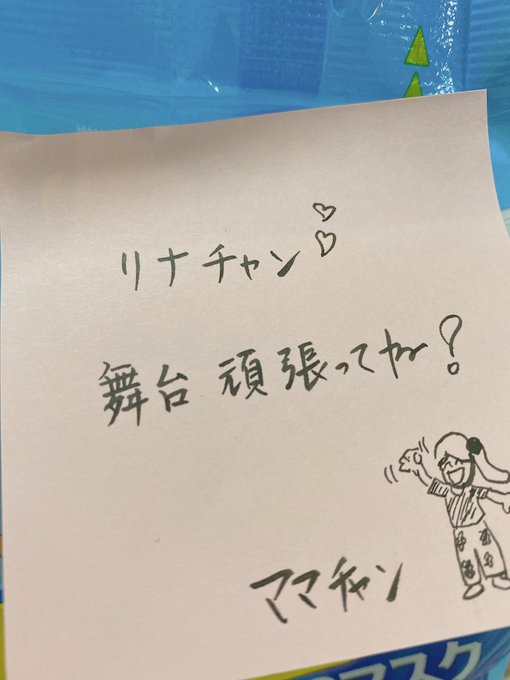 リナチャン♡♡
舞台 頑張ってね!
ママチャン
マスク